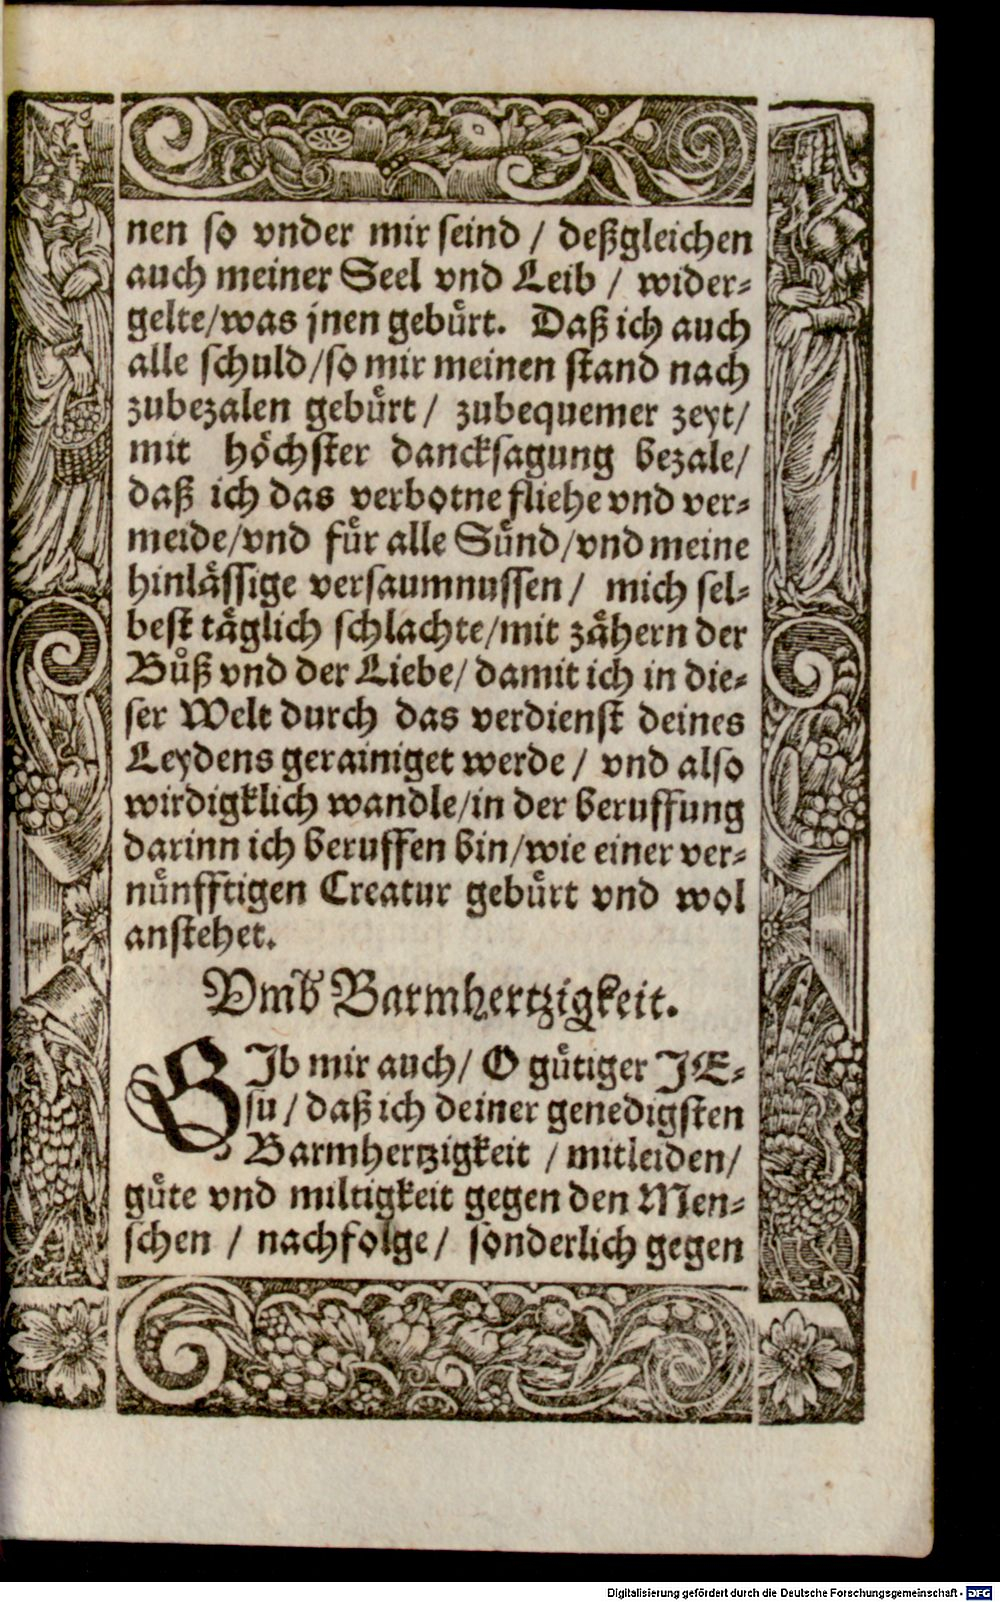 nen so vnder mir seind / deßgleichen
auch meiner Seel vnd Leib / wider-
gelte/was jnen gebürt. Daß ich auch
alle schuld/so mir meinen stand nach
zubezalen gebürt / zubequemer zeyt/
mit höchster dancksagung bezale/
daß ich das verbotne fliehe vnd ver-
meide/vnd für alle Sünd/vnd meine
hinlässige versaumnussen / mich sel-
best täglich schlachte/mit zähern der
Bůß vnd der Liebe/ damit ich in die-
ser Welt durch das verdienst deines
Leydens gerainiget werde / vnd also
wirdigklich wandle/in der beruffung
darinn ich beruffen bin/wie einer ver-
nünfftigen Creatur gebürt vnd wol
anstehet.
Vmb Barmhertzigkeit.
GIb mir auch/ O gütiger JE-
su / daß ich deiner genedigsten
Barmhertzigkeit / mitleiden/
güte vnd miltigkeit gegen den Men-
schen / nachfolge/ sonderlich gegen
Digitalisierung gefördert durch die Deutsche Forschungsgemeinschaft - DFG